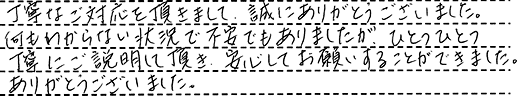 丁寧なご対応を頂きまして、誠にありがとうございました。
何もわからない状況で不安でもありましたが、ひとつひとつ
丁寧にご説明して頂き、安心してお願いすることができました。
ありがとうございました。